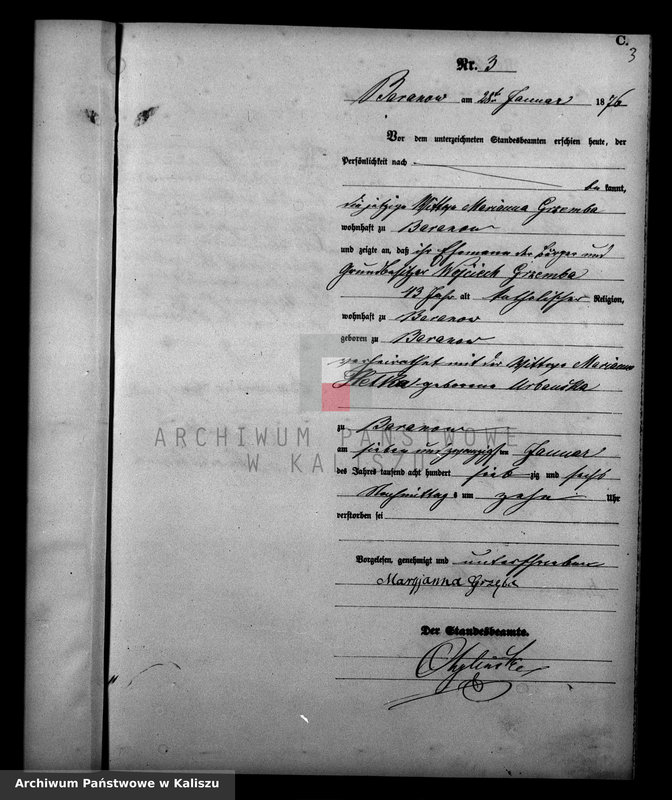 C.
3
Nr. 3
Baranow am 28t Januar 1876
Vor dem unterzeichneten Standesbeamten erschien heute, der
Persönlichkeit nach
bekannt,
die jetzige Wittwe Marianna Grzemba
wohnhaft zu Baranow
und zeigte an, daß ihr Ehemann der Bürger und
Grundbesitzer Wojciech Grzemba
43 Jahr alt katholischer Religion,
wohnhaft zu Baranow
geboren zu Baranow
verheirathet mit der Wittwe Marianna
geborene Urbańska
zu Baranow
am sieben und zwanzigsten Januar
des Jahres tausend acht hundert siebzig und sechs
Nachmittags um zehn Uhr
verstorben sei
Vorgelesen, genehmigt und unterschrieben
Maryjanna Grzęba
Der Standesbeamte.
ARCHIWUM PAŃSTWOWE
W KALISZU
Archiwum Państwowe w Kaliszu